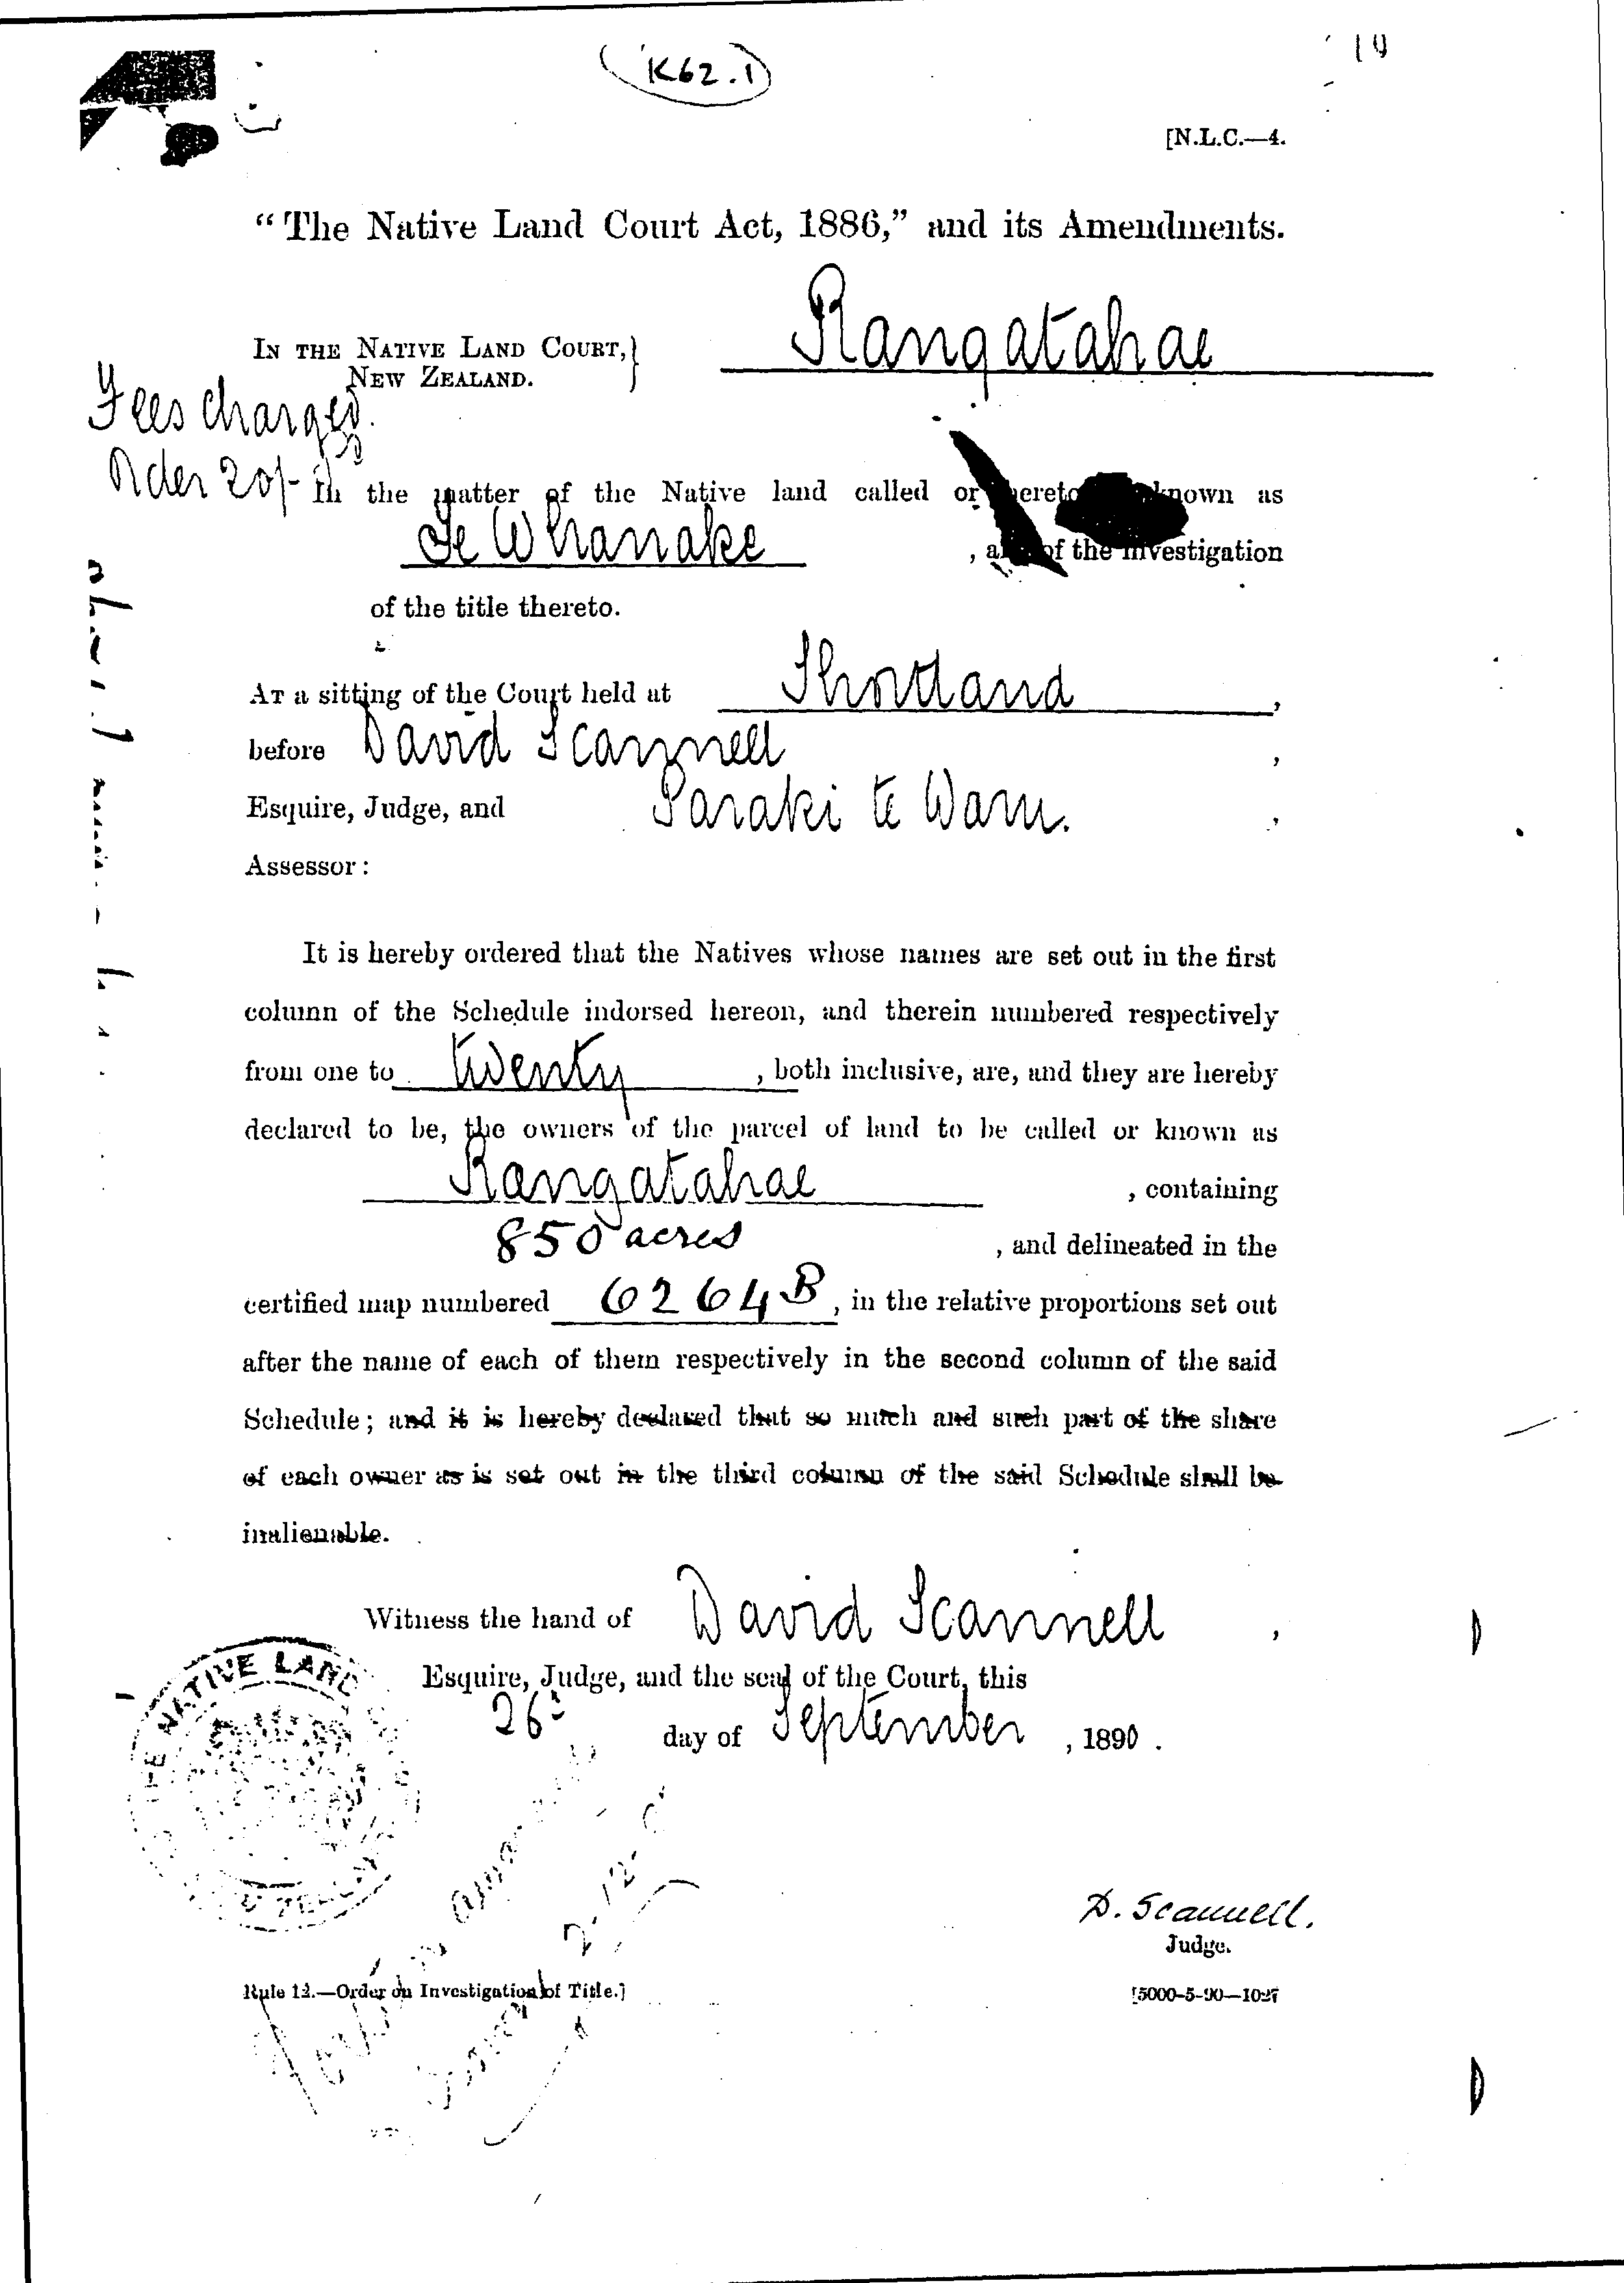 K62.1
[N.L.C.—4.
"The Native Land Court Act, 1886," and its Amendments.
IN THE NATIVE LAND COURT,
NEW ZEALAND.
Rangatahae
Fees charged
Order 20/-
In the matter of the Native land called or known as
Te Whanake
, of the investigation
of the title thereto.
AT a sitting of the Court held at Shortland,
before David Scannell,
Esquire, Judge, and Paraki te Waru.,
Assessor:
It is hereby ordered that the Natives whose names are set out in the first
column of the Schedule indorsed hereon, and therein numbered respectively
from one to twenty, both inclusive, are, and they are hereby
declared to be, the owners of the parcel of land to be called or known as
Rangatahae, containing
850 acres, and delineated in the
certified map numbered 6264B, in the relative proportions set out
after the name of each of them respectively in the second column of the said
Schedule; and it is hereby declared that so much and such part of the share
of each owner as is set out in the third column of the said Schedule shall be
inalienable.
Witness the hand of David Scannell,
Esquire, Judge, and the seal of the Court, this
26 day of September, 1890.
NATIVE LAND
D. Scannell.
Judge.
Rule 12.—Order on Investigation of Title.]
[5000-5-90—1027